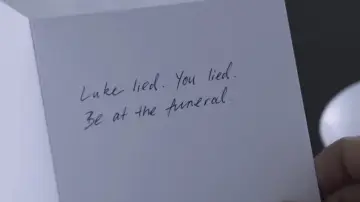 Luke lied. You lied.
Be at the funeral.